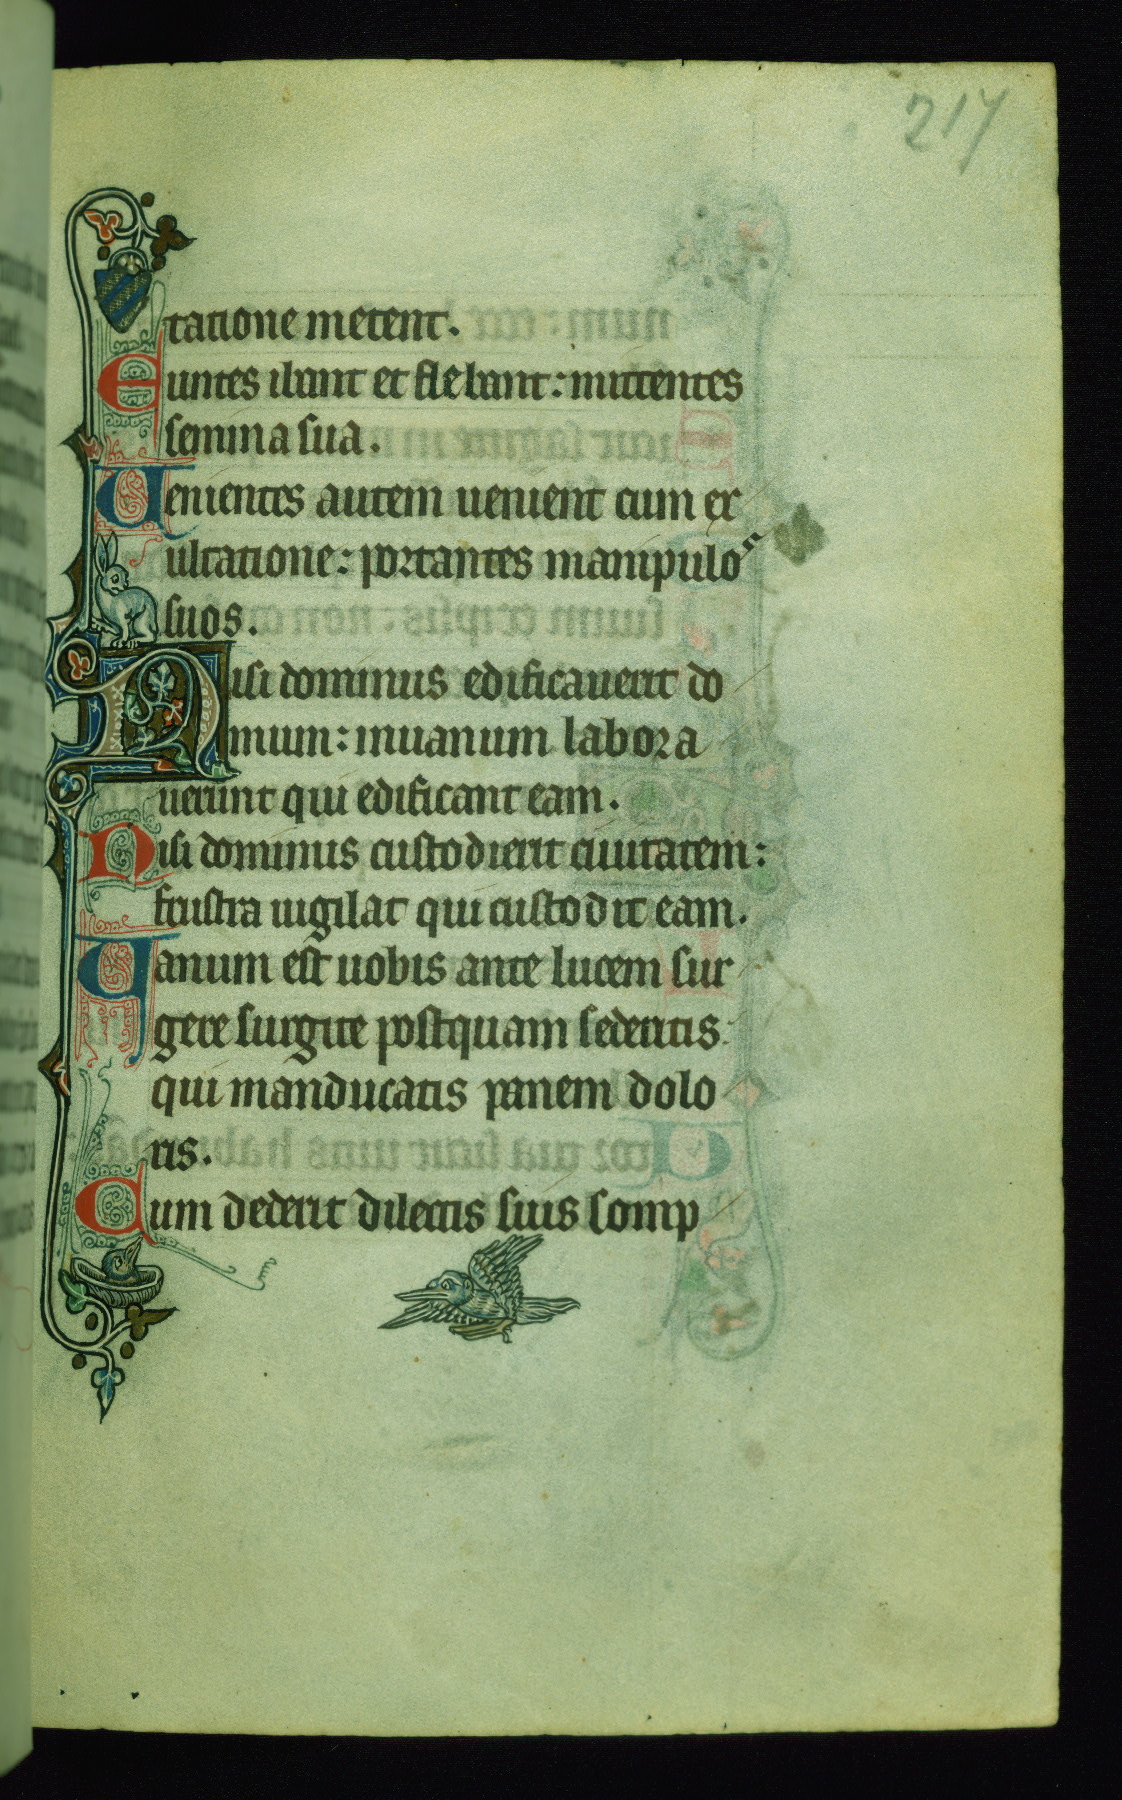 217
tatione metent.
Euntes ibant et flebant: mittentes
semina sua.
Uenientes autem uenient cum ex
ultatione: portantes manipulos
suos.
Nisi dominus edificauerit do
mum: inuanum labora
uerunt qui edificant eam.
Nisi dominus custodierit ciuitatem:
frustra uigilat qui custodit eam.
Uanum est uobis ante lucem sur
gere surgite postquam sederitis
qui manducatis panem dolo
ris.
Cum dederit dilectis suis somp